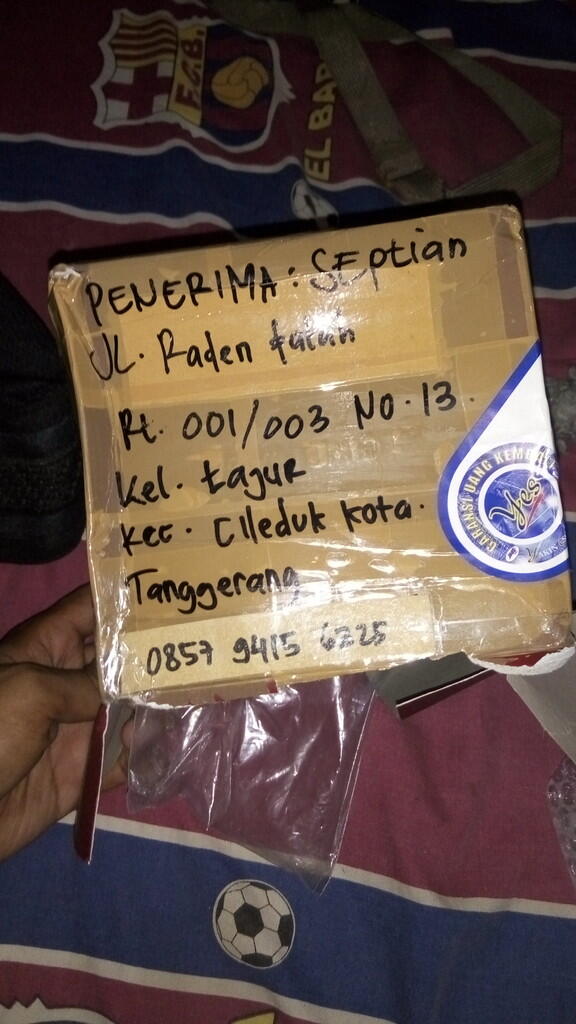 F.C.B.
EL BAR
PENERIMA : SEptian
JL. Raden fatah
Rt. 001/003 NO.13.
Kel. tajur
Kec. Cileduk kota.
Tanggerang
0857 9415 6225
GARANSI UANG KEMBA
Yes